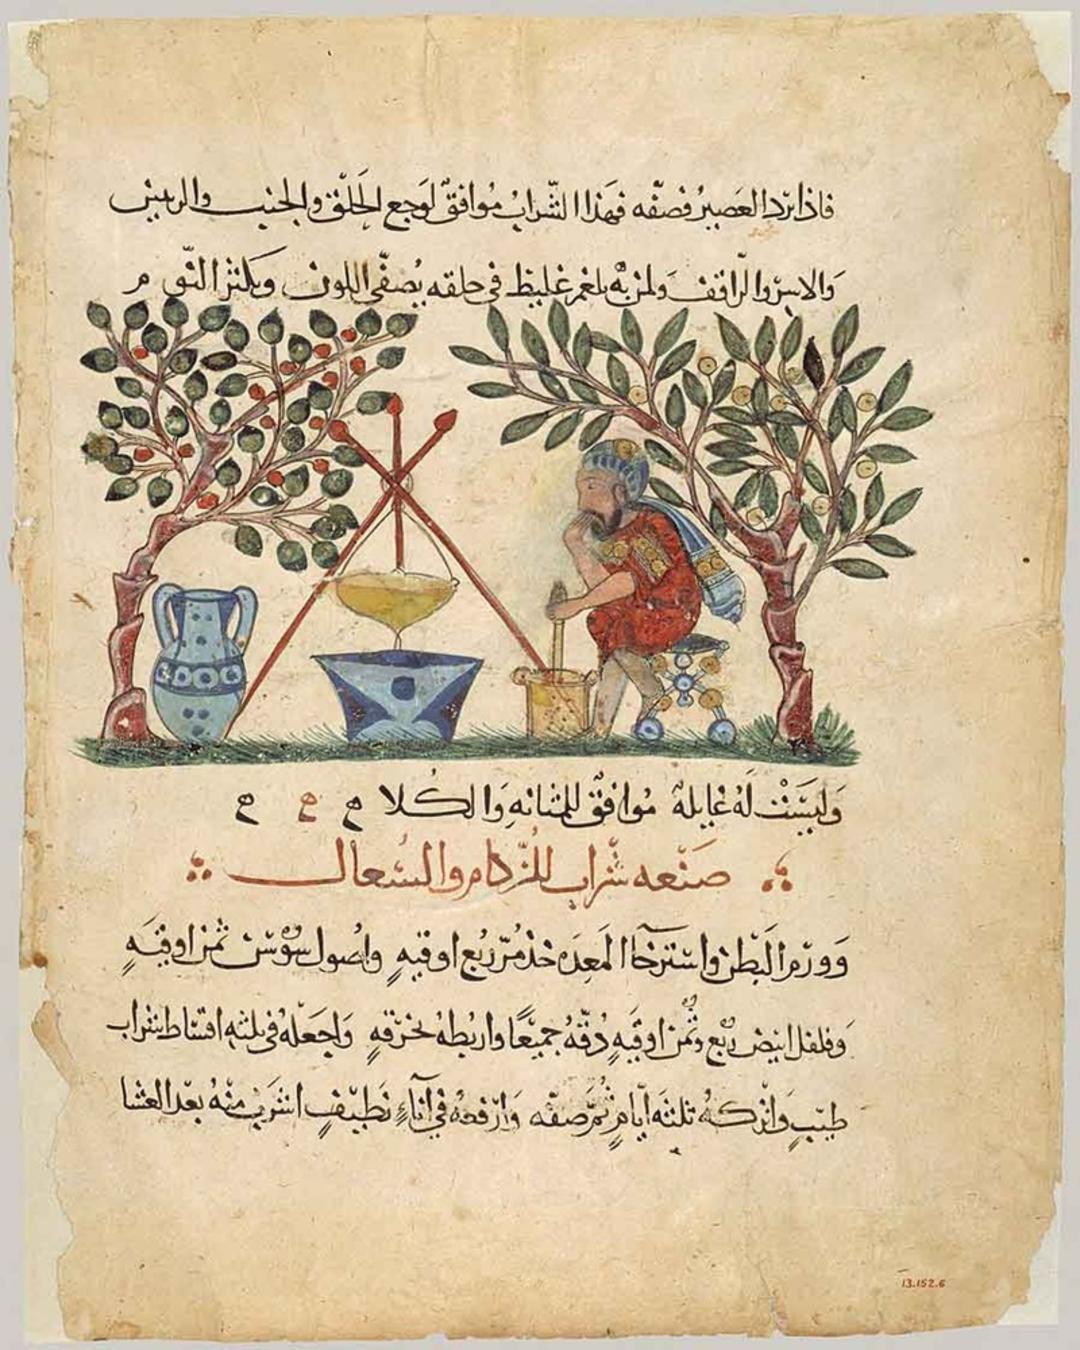 فاذا برد العصير فصفه فهذا الشراب موافق لوجع الحلق والجنب والرئتين
والاسر والراقف ولمن به بلغم غليظ في حلقه يصفي اللون ويكثر النوم
وَليسَتْ لَهُ غايلةٌ موافقٌ للمثانهِ وَالكُلا ح ح ح
صَنْعه شراب للزُّكام والسُعال
وَورَم البَطن واسترخا المعِدَه خذ مُرّ رُبع اوقيهٍ واصُول سُوْسَن ثمن اوقيَهٍ
وَفلفل ابيض رُبع وثُمن اوقيَهٍ دُقّهُ جميعًا واربُطهُ بخرْقهٍ وَاجعَلهُ في ثلثه اقساط شراب
طيّبٍ وَاتركهُ ثلثَه أيامٍ ثُمّ صَفّه وَارْفعهُ في اناءٍ نَظيفٍ اشرَب منهُ بعْد العَشا
13.152.6